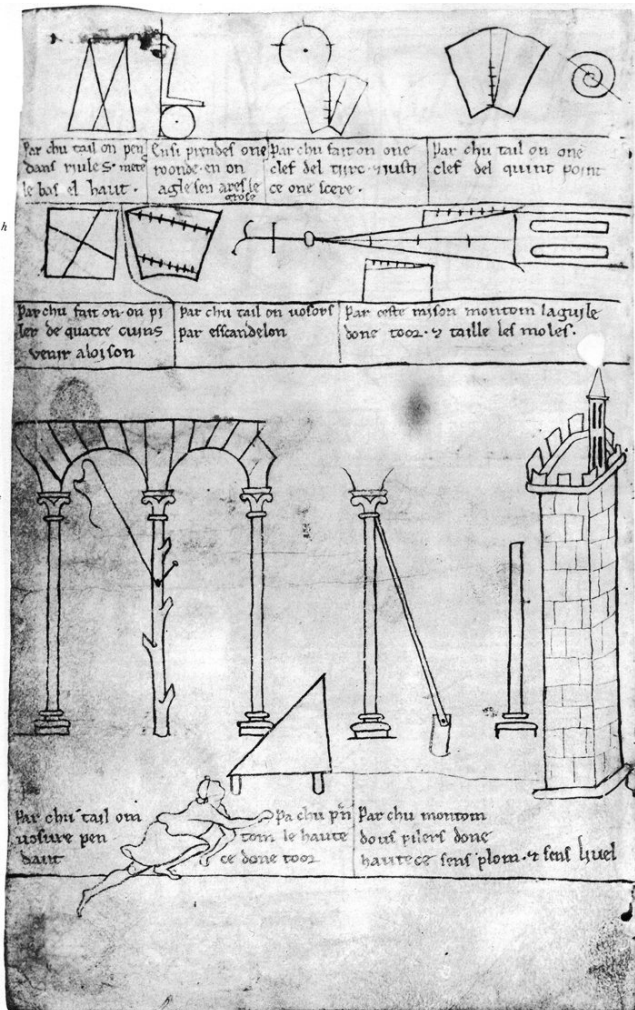 Par chu tail on pen
dans riules. metes
le bas el haut.
Ensi prendes one
roonde. en on
agle sen ares le
grose
Par chu fait on one
clef del tirc. justi
ce one scere.
Par chu tail on one
clef del quint point
h
Par chu fait on. on pi
ler de quatre cuins
venir aloison
Par chu tail on vosors
par esscandelon
Par ceste raison montom laguile
done toor. & taille les moles.
Par chu tail om
vosure pen
dant
Pa chu pn
tom le haute
ce done toor
Par chu montom
dous pilers done
hautece sens plom. & sens livel